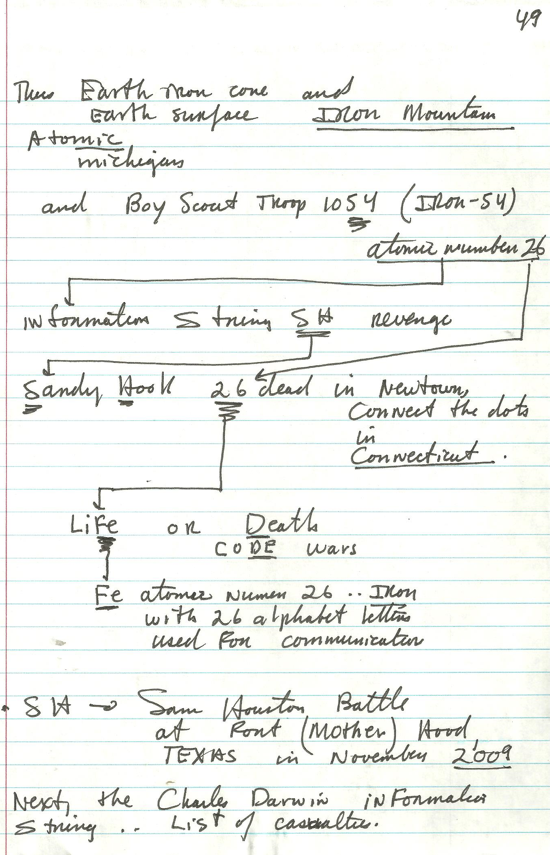 49
Thus Earth iron core and
Earth surface Iron Mountain
Atomic
michigan
and Boy Scout Troop 1054 (Iron-54)
atomic number 26
information String SH revenge
Sandy Hook 26 dead in Newtown,
Connect the dots
in
Connecticut.
LiFe or Death
CODE wars
Fe atomic numer 26 .. Iron
with 26 alphabet letters
used for communication
• SH → Sam Houston Battle
at Font (Mother) Hood,
TEXAS in November 2009
Next, the Charles Darwin inFormation
String .. List of casualties.